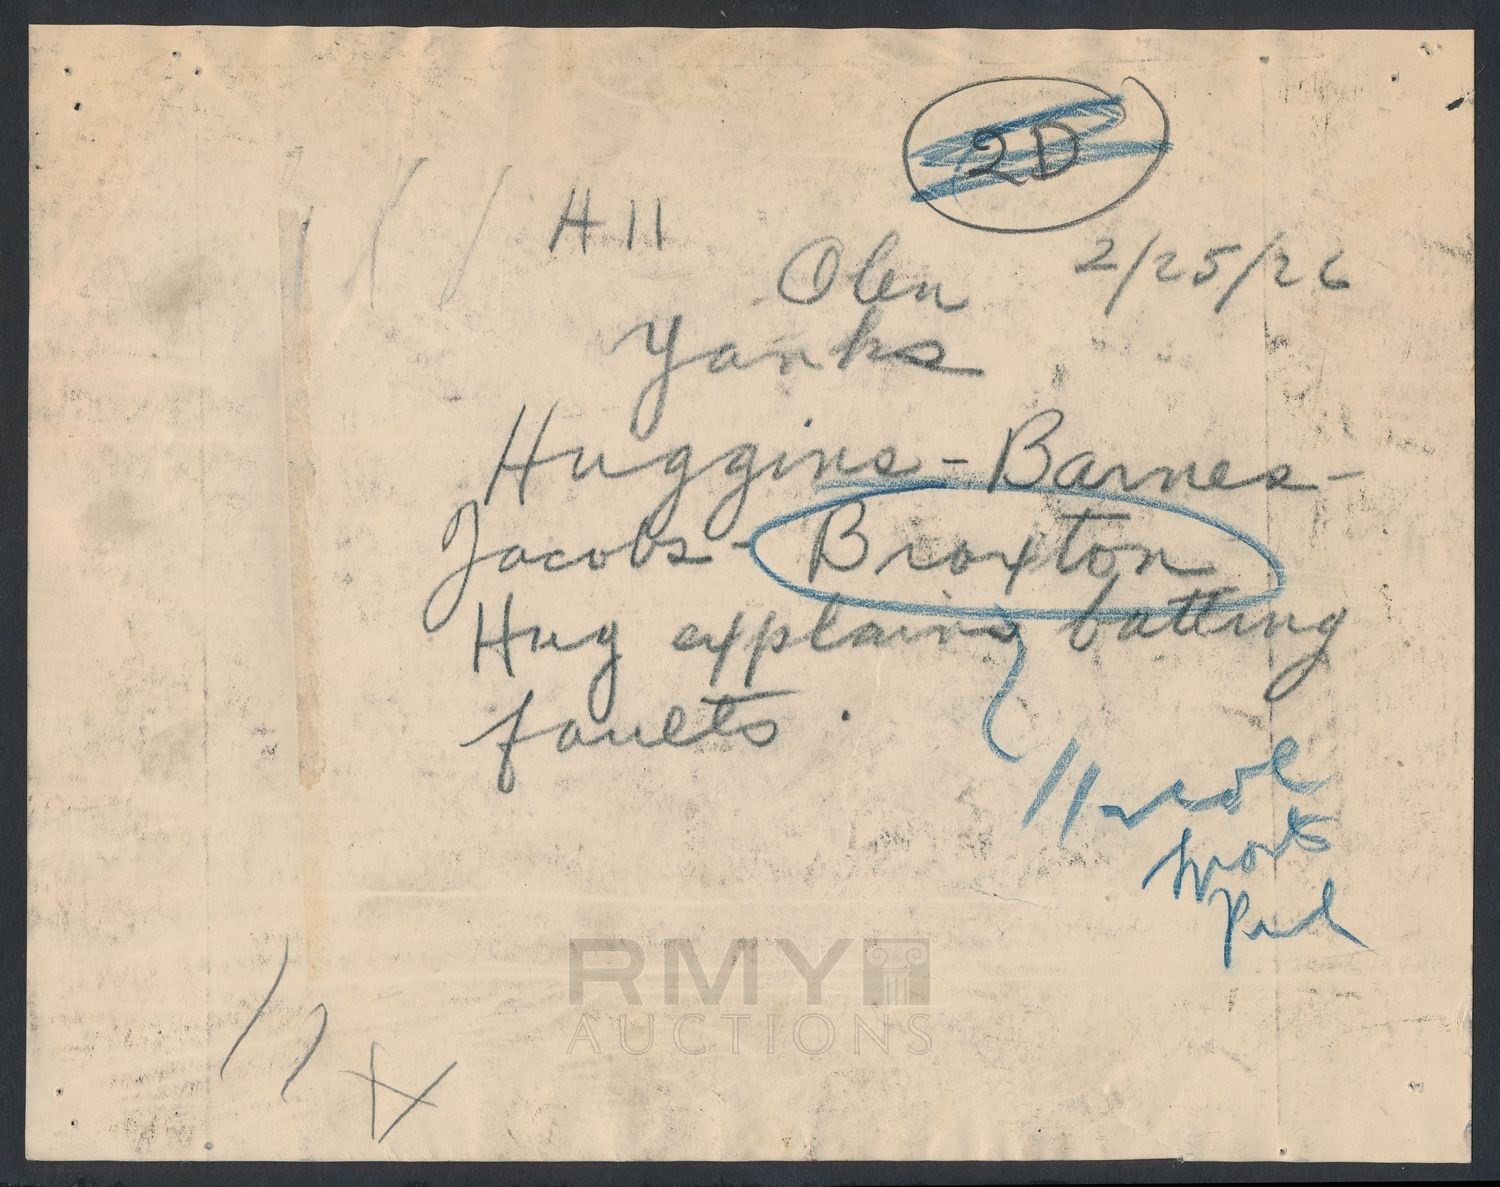 2D
H 11
Olen 2/25/26
Yanks
Huggins - Barnes -
Jacobs - Braxton
Hug explains batting
faults.
Sports
RMY
AUCTIONS